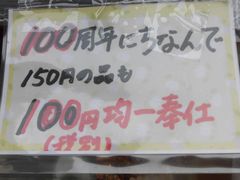 100周年にちなんで
150円の品も
100円均一奉仕